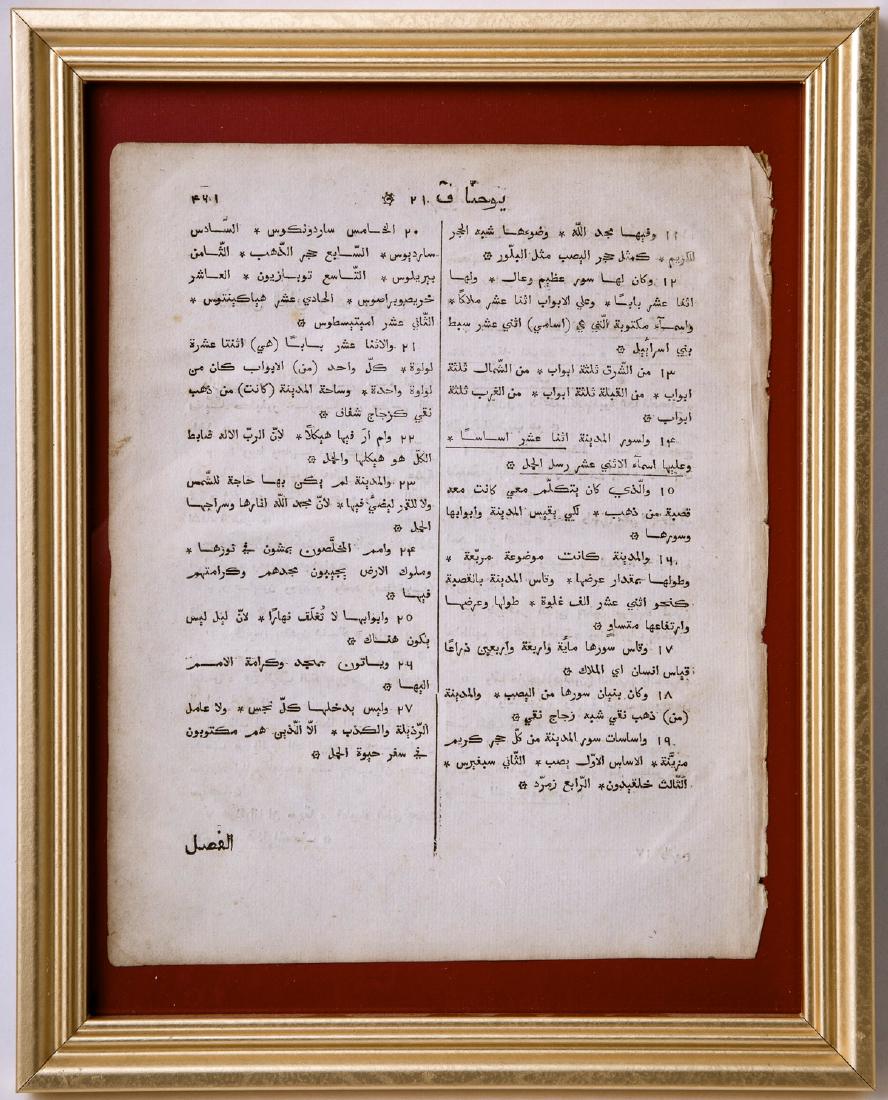 يوحنّا ف ٢١ ۞ ۴٦١
١١ وفيها مجد اللّه * وضوءها شبه الحجر
الكريم * كمثل حجر اليصب مثل البلّور ۞
١٢ وكان لها سور عظيم وعال * ولها
اثنا عشر بابًا * وعلي الابواب اثنا عشر ملاكًا *
واسمآء مكتوبة الّتي هي (اسامي) اثني عشر سبط
بني اسرآئيل ۞
١٣ من الشّرق ثلثة ابواب * من الشّمال ثلثة
ابواب * من القبلة ثلثة ابواب * من الغرب ثلثة
ابواب ۞
١۴ ولسور المدينة اثنا عشر اساسًا *
وعليها اسمآء الاثني عشر رسل الحمل ۞
١٥ والّذي كان يتكلّم معي كانت معه
قصبة من ذهب * لكي يقيس المدينة وابوابها
وسورها ۞
١٦ والمدينة كانت موضوعة مربّعة *
وطولها بمقدار عرضها * وقاس المدينة بالقصبة
كنحو اثني عشر الف غلوة * طولها وعرضها
وارتفاعها متساوٍ ۞
١٧ وقاس سورها مائة واربعة واربعين ذراعًا
قياس انسان اي الملاك ۞
١٨ وكان بنيان سورها من اليصب * والمدينة
(من) ذهب نقي شبه زجاج نقي ۞
١٩ واساسات سور المدينة من كلّ حجر كريم
مزيّنة * الاساس الاوّل يصب * الثّاني سيفيرس *
الثّالث خلقيدون * الرّابع زمرّد ۞
٢٠ الخامس ساردونكوس * السّادس
سارديوس * السّابع حجر الذّهب * الثّامن
بيريلوس * التّاسع توبازيون * العاشر
خريصوبراصوس * الحادي عشر هياكينتوس *
الثّاني عشر اميتيسطوس ۞
٢١ والاثنا عشر بابًا (هي) اثنتا عشرة
لولوة * كلّ واحد (من) الابواب كان من
لولوة واحدة * وساحة المدينة (كانت) من ذهب
نقي كزجاج شفاف ۞
٢٢ ولم ارَ فيها هيكلًا * لانّ الربّ الاله ضابط
الكلّ هو هيكلها والحمل ۞
٢٣ والمدينة لم يكن بها حاجة للشّمس
ولا للقمر ليضئَ فيها * لانّ مجد اللّه انارها وسراجها
الحمل ۞
٢۴ وامم المخلّصون يمشون في نورها *
وملوك الارض يجيبون مجدهم وكرامتهم
فيها ۞
٢٥ وابوابها لا تُغلَق نهارًا * لانّ ليل ليس
يكون هناك ۞
٢٦ وياتون بمجد وكرامة الامم
اليها ۞
٢٧ وليس يدخلها كلّ نجس * ولا عامل
الرّذيلة والكذب * الّا الّذين هم مكتوبون
في سفر حيوة الحمل ۞
الفصل